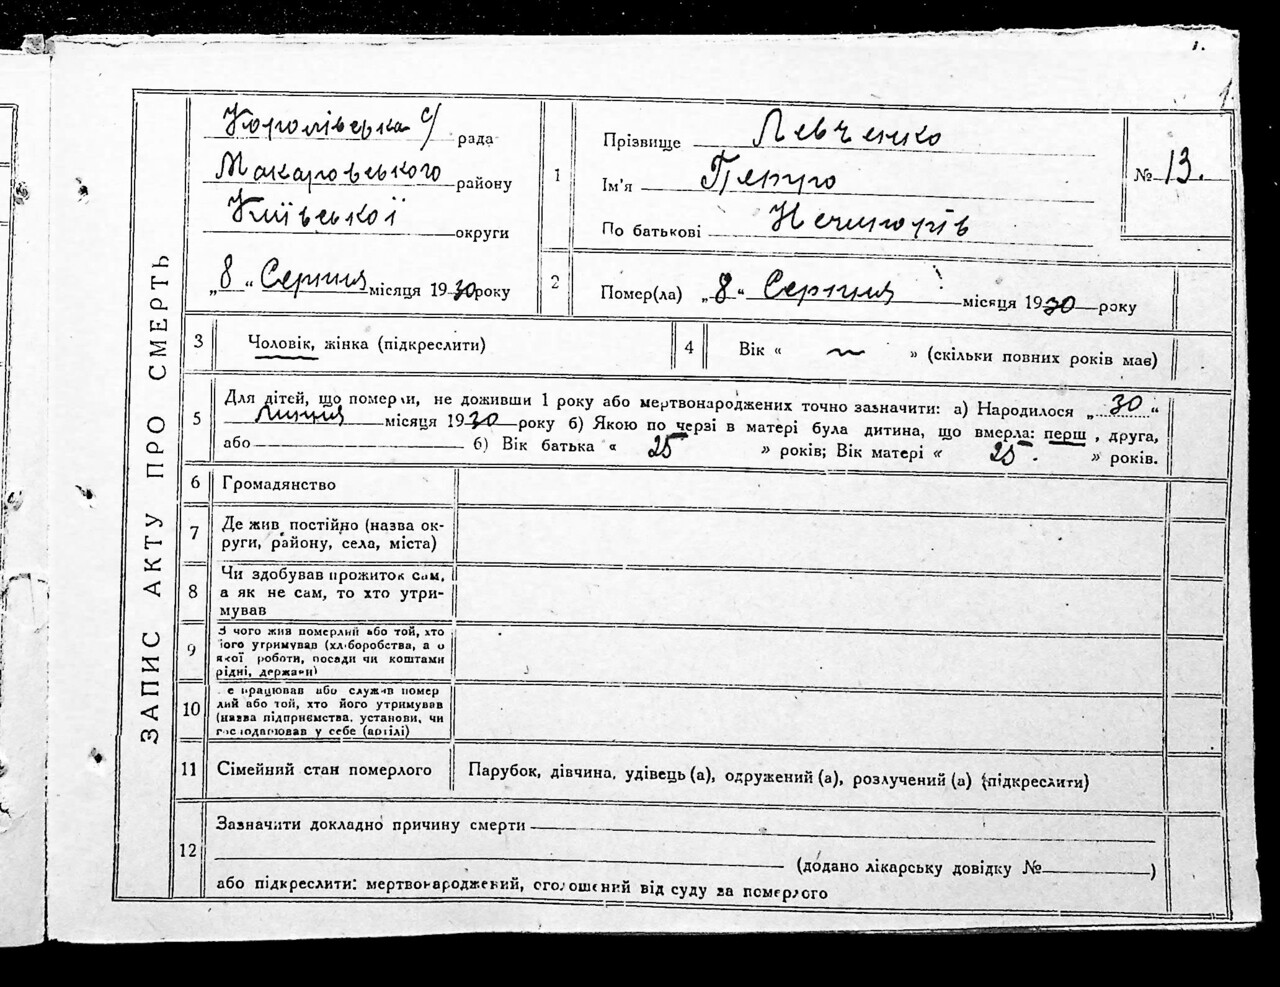 1.
1
ЗАПИС АКТУ ПРО СМЕРТЬ
Королівка с/ рада
Макаровського району
Київської округи
„8“ Серпня місяця 1930 року
1
Прізвище Левченко
Ім'я Петро
По батькові
№ 13.
2
Помер(ла) „8“ Серпня місяця 1930 року
3 Чоловік, жінка (підкреслити)
4 Вік « ~ » (скільки повних років має)
5 Для дітей, що померли, не доживши 1 року або мертвонароджених точно зазначити: а) Народилося „30“
Липня місяця 1930 року б) Якою по черзі в матері була дитина, що вмерла: перш , друга,
або б) Вік батька « 25 » років; Вік матері « 25. » років.
6 Громадянство
7 Де жив постійно (назва ок-
руги, району, села, міста)
8 Чи здобував прожиток сам,
а як не сам, то хто утри-
мував
9 З чого жив померлий або той, хто
його утримував (хліборобства, а о
якої роботи, посади чи коштами
рідні, держави)
10 е працював або служив помер
лий або той, хто його утримував
(назва підприємства, установи, чи
господарював у себе (артілі)
11 Сімейний стан померлого Парубок, дівчина, удівець (а), одружений (а), розлучений (а) (підкреслити)
12 Зазначити докладно причину смерти
(додано лікарську довідку № )
або підкреслити: мертвонароджений, оголошений від суду за померлого